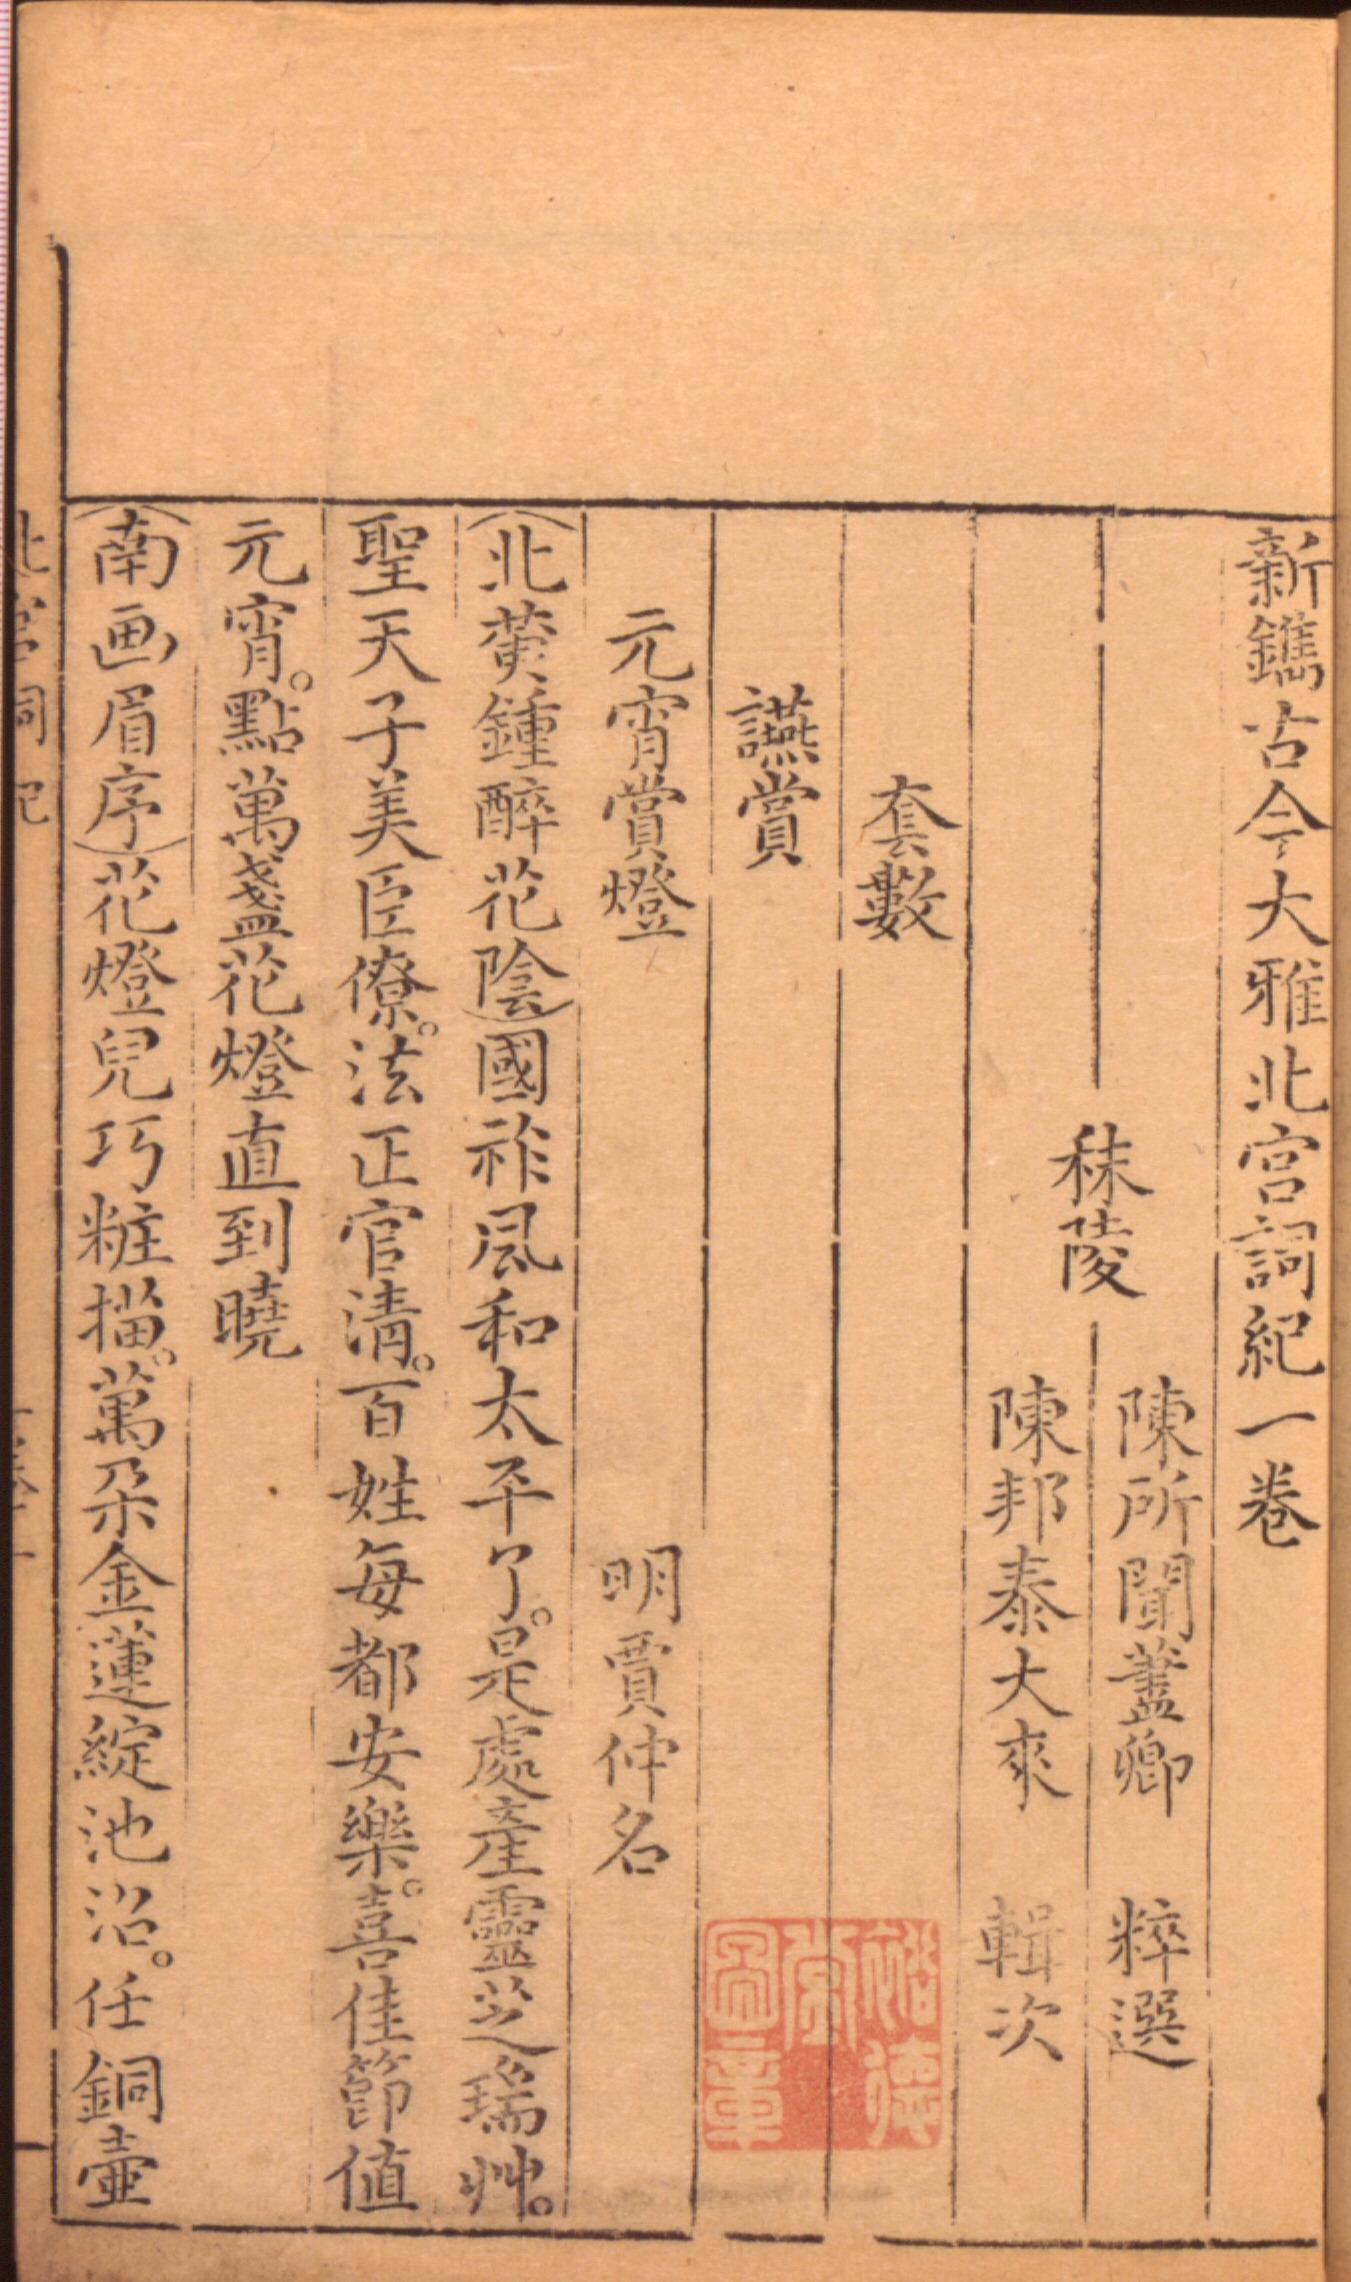 新鐫古今大雅北宮詞紀一卷
秣陵
陳所聞藎卿 粹選
陳邦泰大來 輯次
套數
讌賞
元宵賞燈 明賈仲名
(北黄鍾醉花陰)國祚風和太平了。是處產靈芝瑞艸。
聖天子美臣僚。法正官清。百姓每都安樂。喜佳節值
元宵。點萬盞花燈直到曉
(南画眉序)花燈兒巧粧描。萬朶金蓮綻池沼。任銅壷